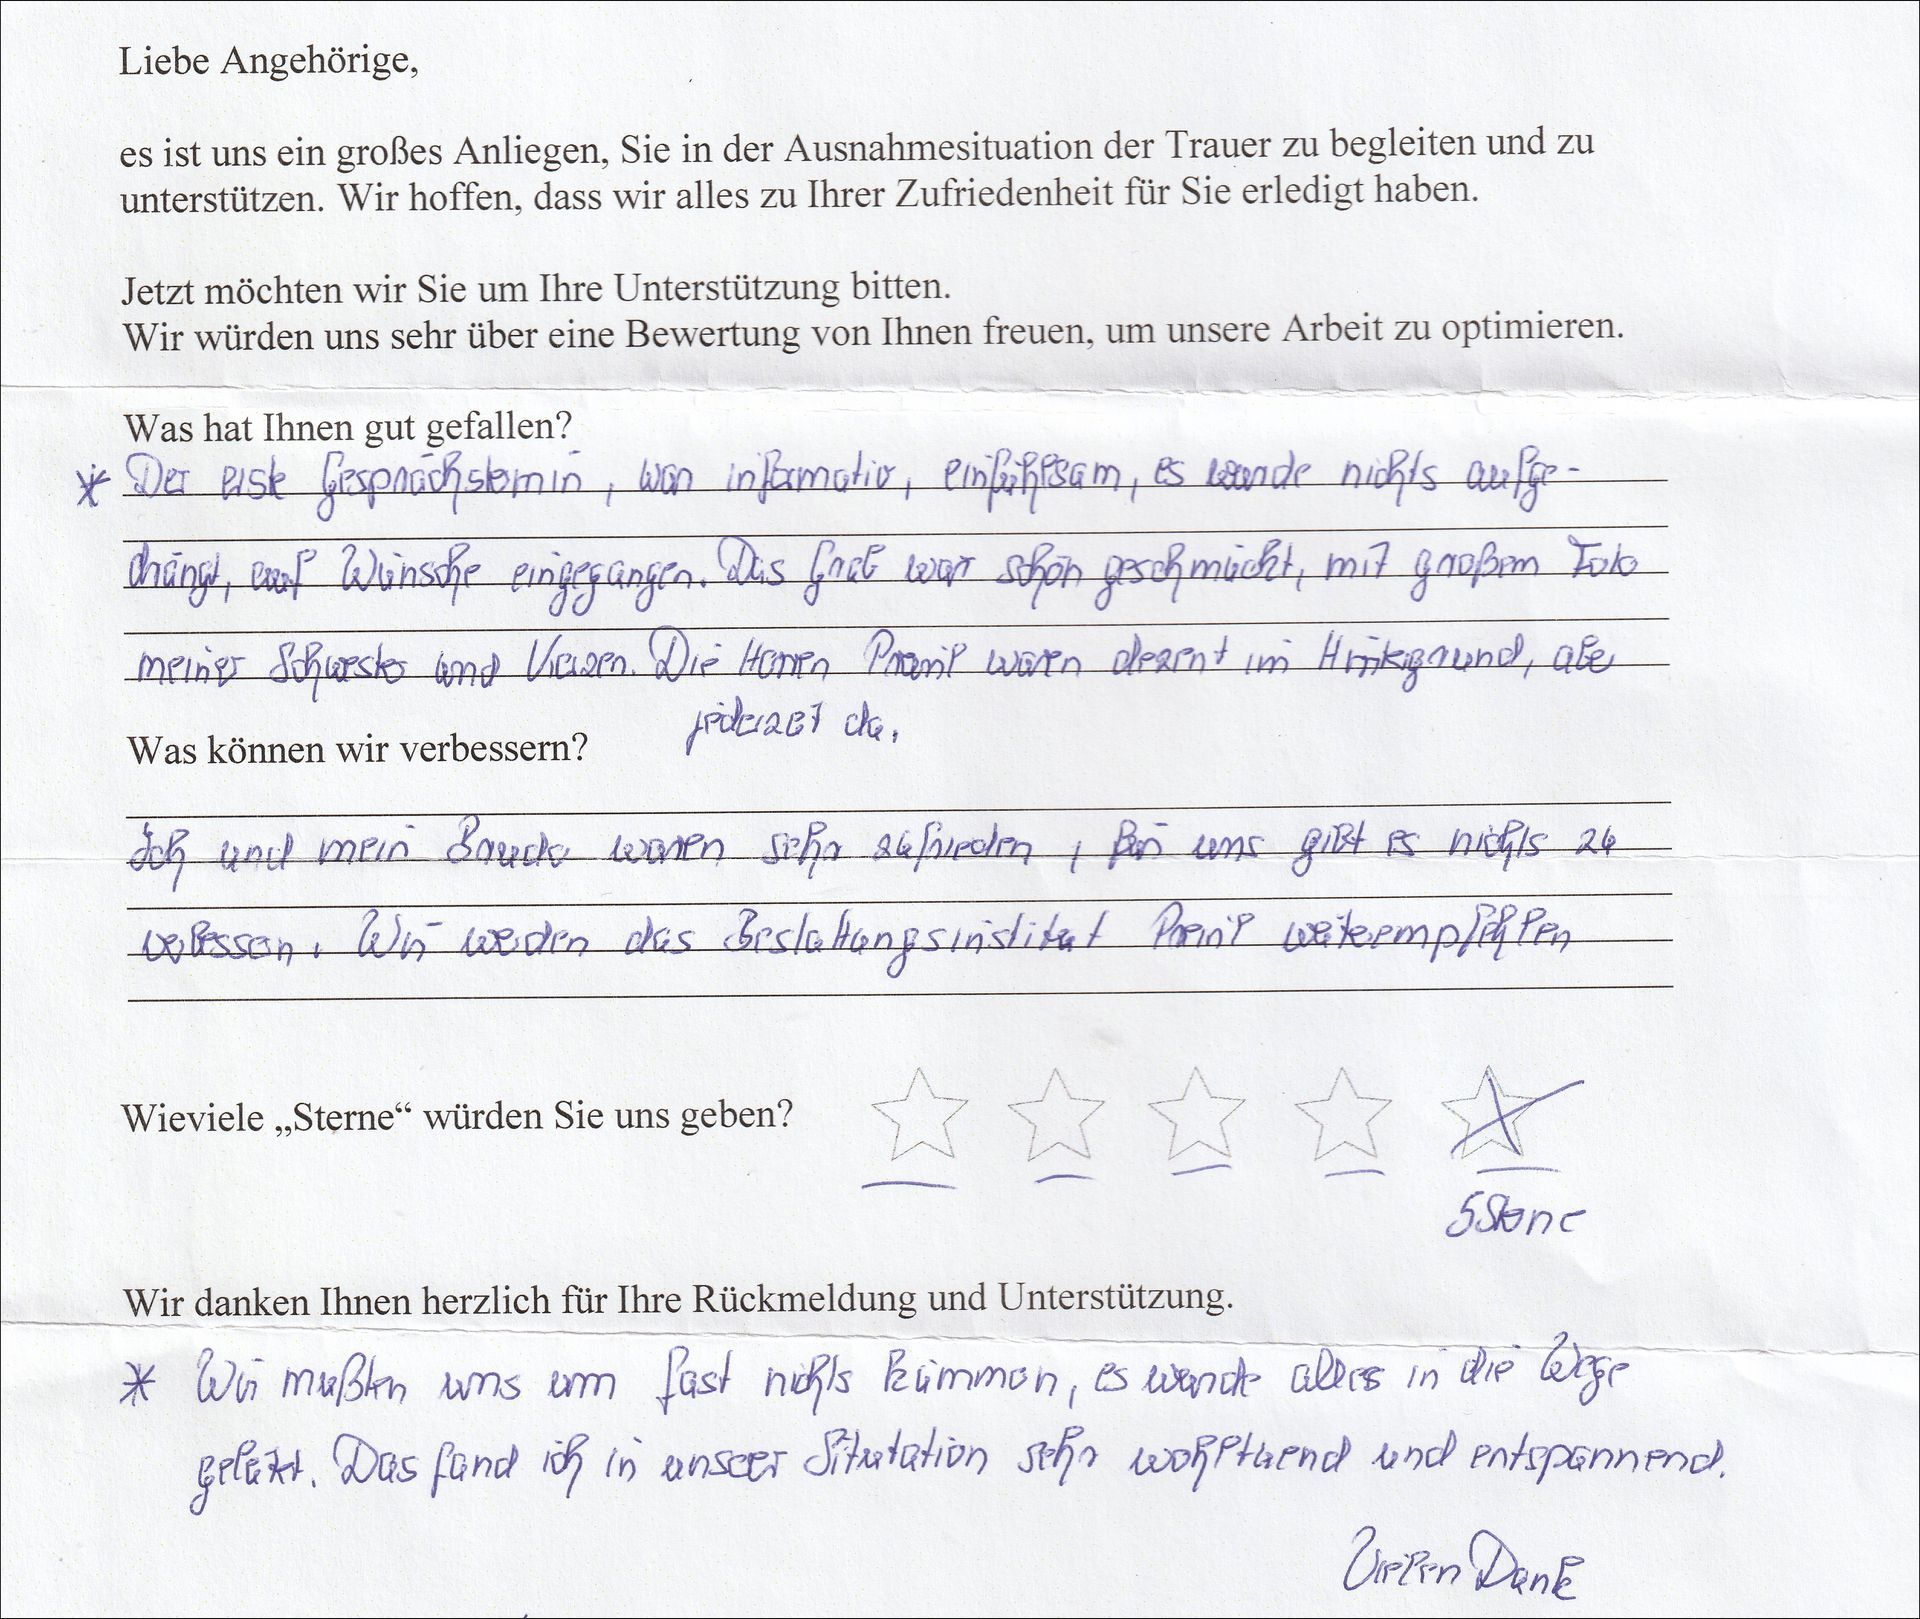 Liebe Angehörige,
es ist uns ein großes Anliegen, Sie in der Ausnahmesituation der Trauer zu begleiten und zu
unterstützen. Wir hoffen, dass wir alles zu Ihrer Zufriedenheit für Sie erledigt haben.
Jetzt möchten wir Sie um Ihre Unterstützung bitten.
Wir würden uns sehr über eine Bewertung von Ihnen freuen, um unsere Arbeit zu optimieren.
Was hat Ihnen gut gefallen?
* Der erste Gesprächstermin, war informativ, einfühlsam, es wurde nichts aufge-
drängt, auf Wünsche eingegangen. Das Grab war schön geschmückt, mit großem Foto
meiner Schwester und Kerzen. Die Herren waren dezent im Hintergrund, aber
jederzeit da.
Was können wir verbessern?
Ich und mein Bruder waren sehr zufrieden, für uns gibt es nichts zu
verbessern. Wir werden das Bestattungsinstitut weiterempfehlen
Wieviele „Sterne“ würden Sie uns geben?
5 Sterne
Wir danken Ihnen herzlich für Ihre Rückmeldung und Unterstützung.
* Wir mußten uns um fast nichts kümmern, es wurde alles in die Wege
geleitet. Das fand ich in unserer Situtation sehr wohltuend und entspannend.
Vielen Dank